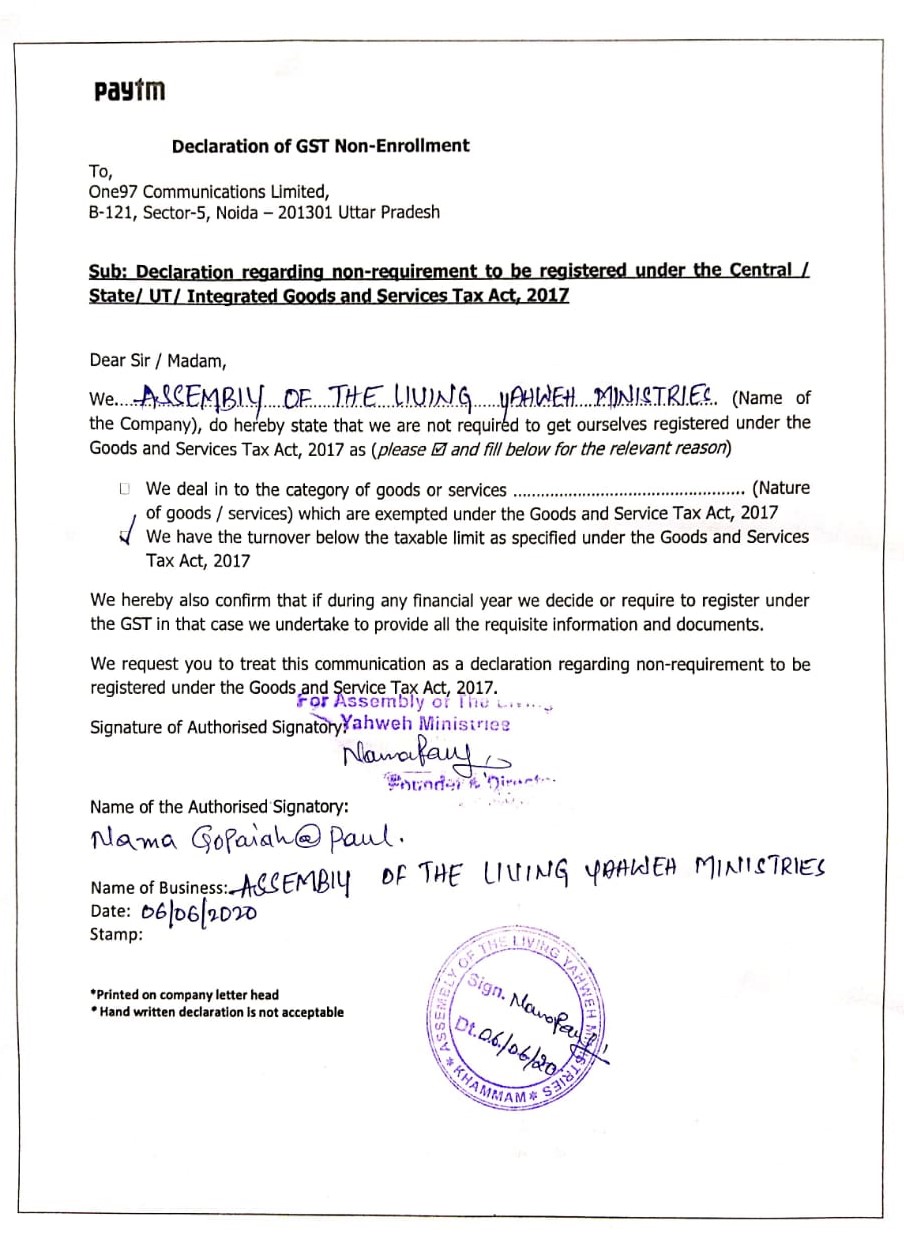 paytm
Declaration of GST Non-Enrollment
To,
One97 Communications Limited,
B-121, Sector-5, Noida – 201301 Uttar Pradesh
Sub: Declaration regarding non-requirement to be registered under the Central /
State/ UT/ Integrated Goods and Services Tax Act, 2017
Dear Sir / Madam,
We....ASSEMBLY OF THE LIVING YAHWEH MINISTRIES. (Name of
the Company), do hereby state that we are not required to get ourselves registered under the
Goods and Services Tax Act, 2017 as (please ☑ and fill below for the relevant reason)
☐ We deal in to the category of goods or services ................................................ (Nature
of goods / services) which are exempted under the Goods and Service Tax Act, 2017
☑ We have the turnover below the taxable limit as specified under the Goods and Services
Tax Act, 2017
We hereby also confirm that if during any financial year we decide or require to register under
the GST in that case we undertake to provide all the requisite information and documents.
We request you to treat this communication as a declaration regarding non-requirement to be
registered under the Goods and Service Tax Act, 2017.
For Assembly of The Living
Signature of Authorised Signatory: Yahweh Ministries
Founder &
Name of the Authorised Signatory:
Nama Gopaiah @ Paul.
Name of Business: ASSEMBLY OF THE LIVING YAHWEH MINISTRIES
Date: 06/06/2020
Stamp:
ASSEMBLY OF THE LIVING YAHWEH MINISTRIES * KHAMMAM *
Sign.
Dt. 06/06/20
*Printed on company letter head
* Hand written declaration is not acceptable